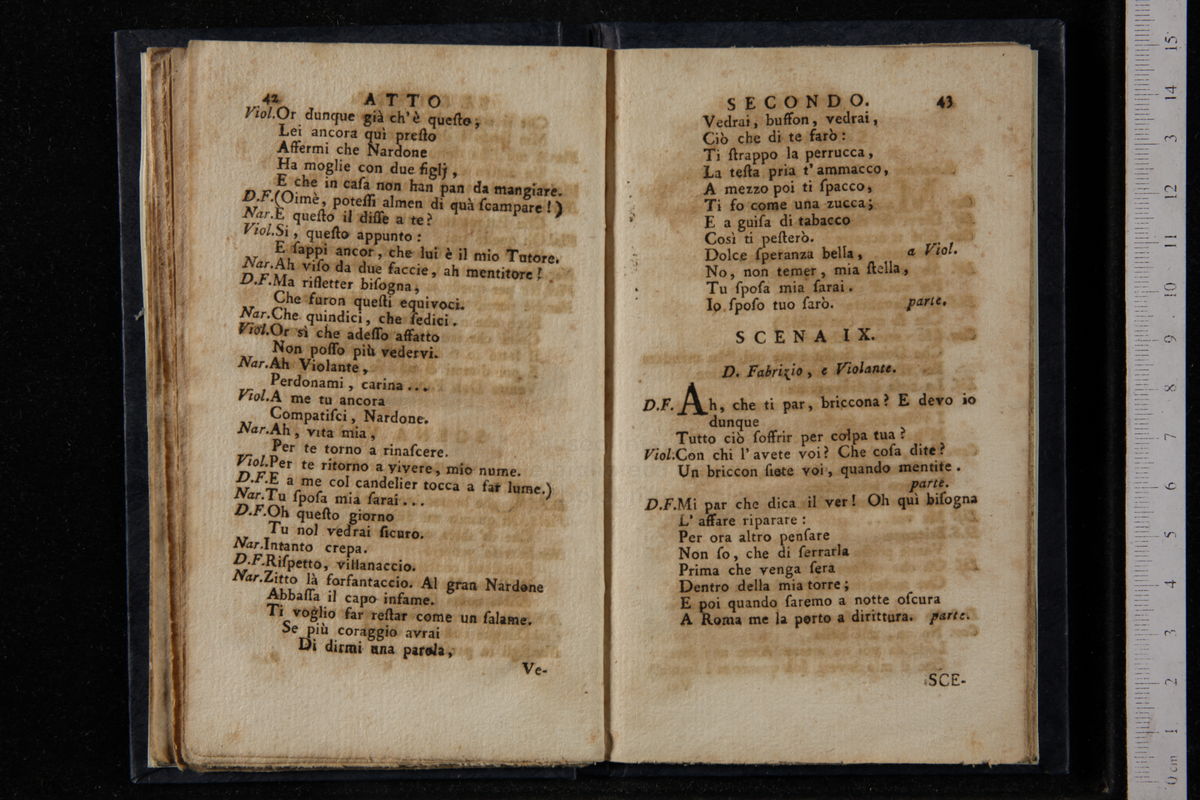 42 ATTO
Viol.Or dunque già ch'è queſto,
Lei ancora quì preſto
Affermi che Nardone
Ha moglie con due figlj,
E che in caſa non han pan da mangiare.
D.F.(Oimè, poteſſi almen di quà ſcampare!)
Nar.E queſto il diſſe a te?
Viol.Si, queſto appunto:
E ſappi ancor, che lui è il mio Tutore.
Nar.Ah viſo da due faccie, ah mentitore!
D.F.Ma rifletter biſogna,
Che furon queſti equivoci.
Nar.Che quindici, che ſedici.
Viol.Or sì che adeſſo affatto
Non poſſo più vedervi.
Nar.Ah Violante,
Perdonami, carina...
Viol.A me tu ancora
Compatiſci, Nardone.
Nar.Ah, vita mia,
Per te torno a rinaſcere.
Viol.Per te ritorno a vivere, mio nume.
D.F.E a me col candelier tocca a far lume.)
Nar.Tu ſpoſa mia ſarai...
D.F.Oh queſto giorno
Tu nol vedrai ſicuro.
Nar.Intanto crepa.
D.F.Riſpetto, villanaccio.
Nar.Zitto là forfantaccio. Al gran Nardone
Abbaſſa il capo infame.
Ti voglio far reſtar come un ſalame.
Se più coraggio avrai
Di dirmi una parola,
Ve-
SECONDO. 43
Vedrai, buffon, vedrai,
Ciò che di te farò:
Ti ſtrappo la perrucca,
La teſta pria t'ammacco,
A mezzo poi ti ſpacco,
Ti fo come una zucca;
E a guiſa di tabacco
Così ti peſterò.
Dolce ſperanza bella, a Viol.
No, non temer, mia ſtella,
Tu ſpoſa mia ſarai.
Io ſpoſo tuo ſarò. parte.
SCENA IX.
D. Fabrizio, e Violante.
D.F. Ah, che ti par, briccona? E devo io
dunque
Tutto ciò ſoffrir per colpa tua?
Viol.Con chi l'avete voi? Che coſa dite?
Un briccon ſiete voi, quando mentite.
parte.
D.F.Mi par che dica il ver! Oh quì biſogna
L'affare riparare:
Per ora altro penſare
Non ſo, che di ſerrarla
Prima che venga ſera
Dentro della mia torre;
E poi quando ſaremo a notte oſcura
A Roma me la porto a dirittura. parte.
SCE-
0 cm 1 2 3 4 5 6 7 8 9 10 11 12 3 14 15